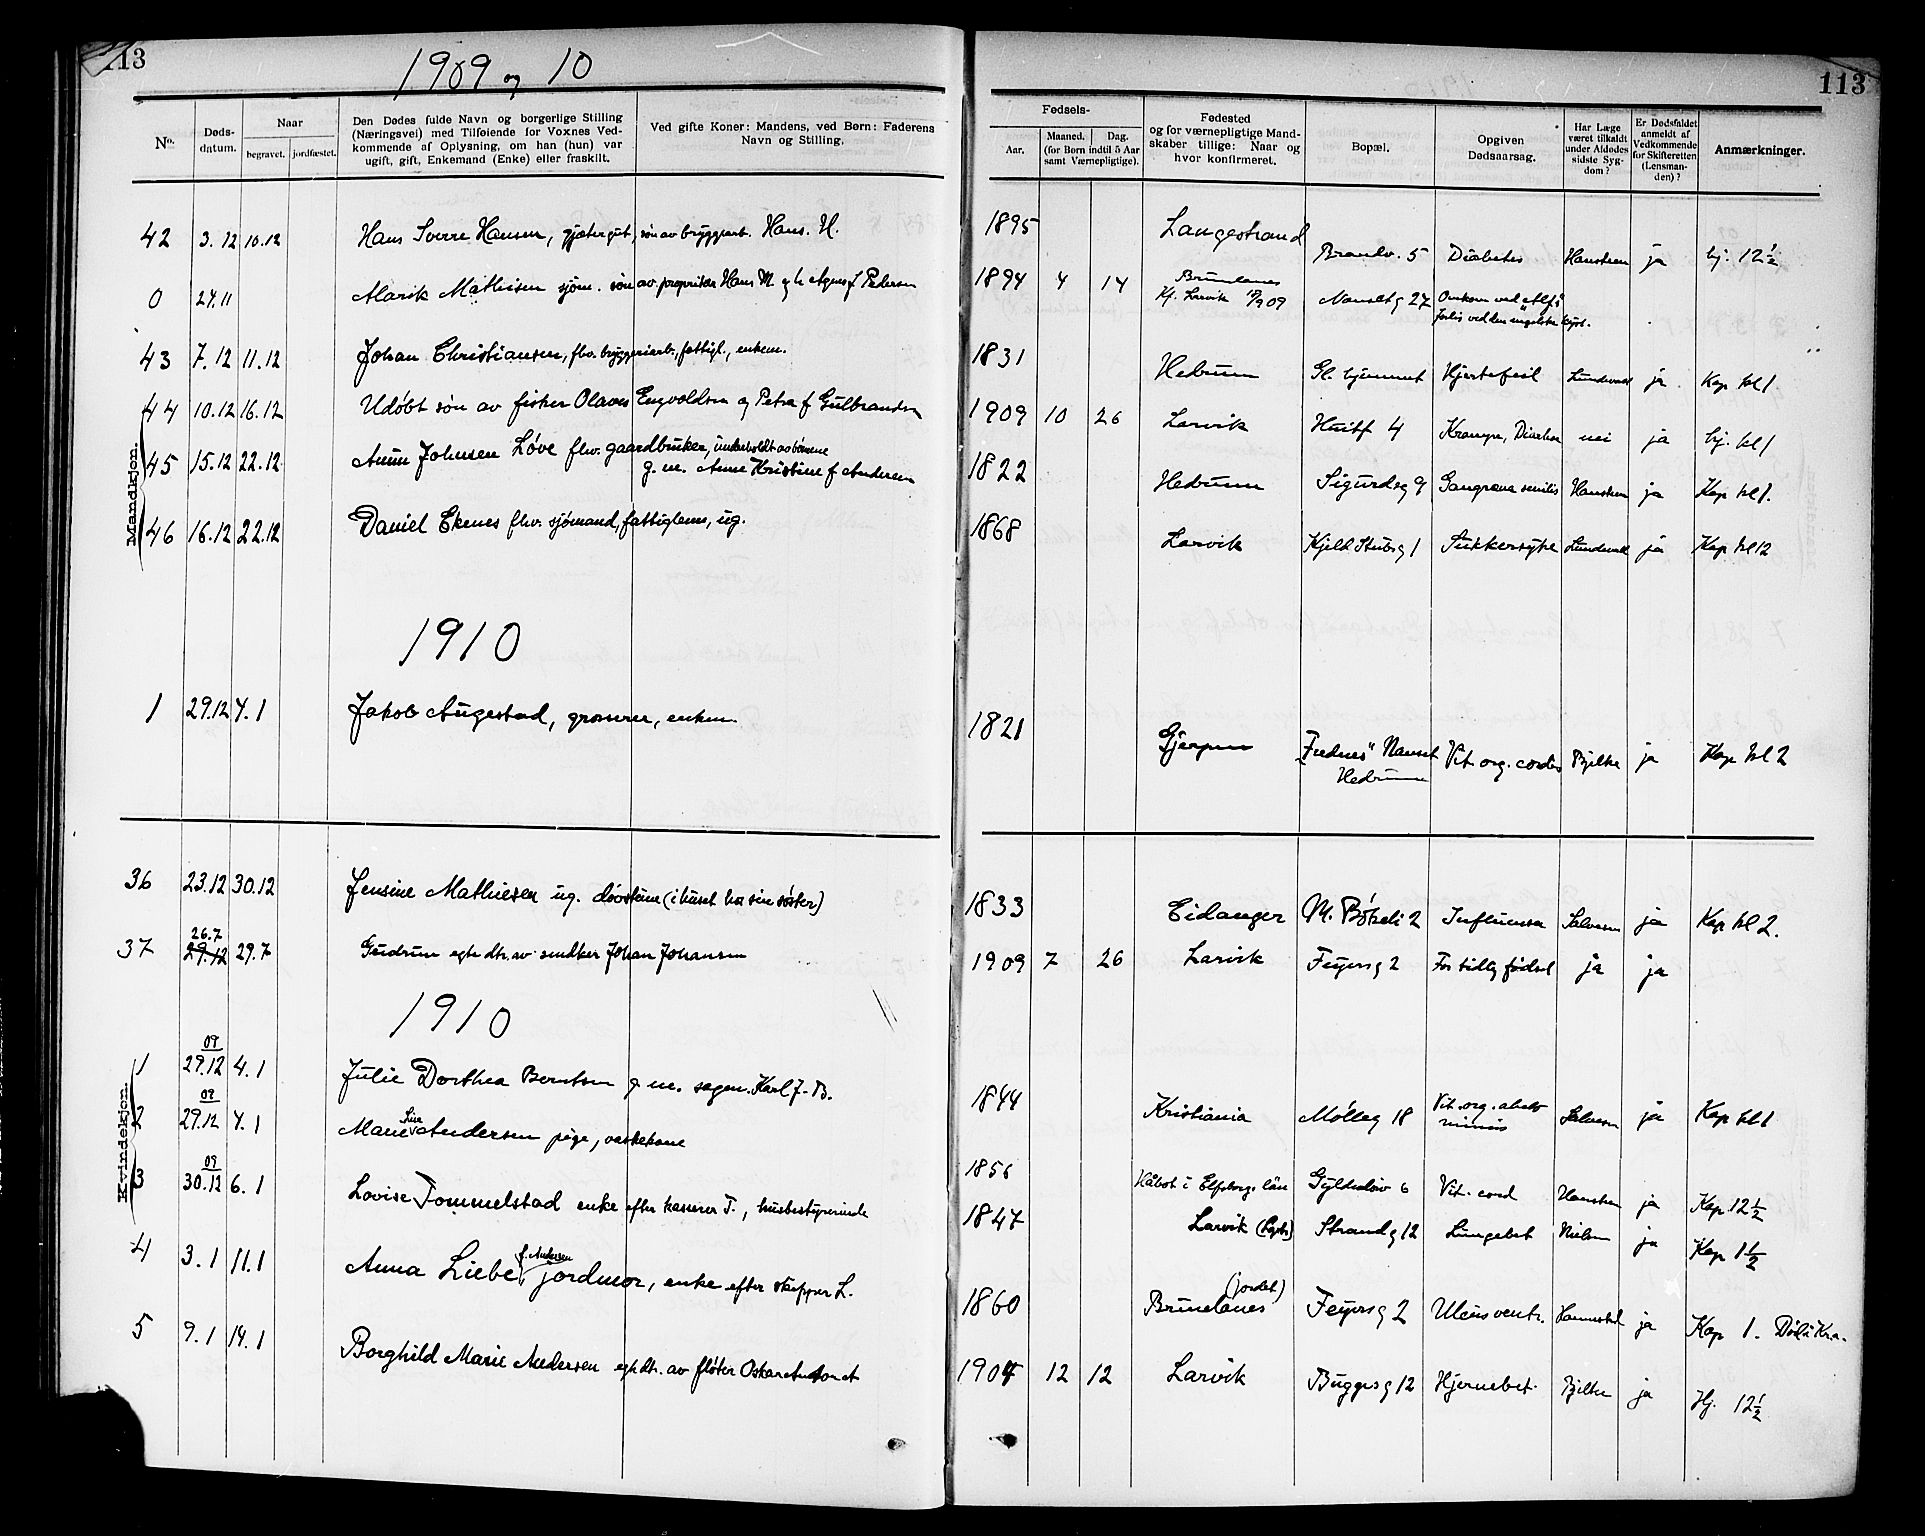 113
1909 og 10
113
No.
Døds-
datum.
Naar
begravet.
jordfæstet.
Den Dødes fulde Navn og borgerlige Stilling
(Næringsvei) med Tilføiende for Voxnes Ved-
kommende af Oplysning, om han (hun) var
ugift, gift, Enkemand (Enke) eller fraskilt.
Ved gifte Koner: Mandens, ved Børn: Faderens
Navn og Stilling.
Fødsels-
Aar.
Maaned. Dag.
(for Børn indtil 5 Aar
samt Værnepligtige).
Fødested
og for værnepligtige Mand-
skaber tillige: Naar og
hvor konfirmeret.
Bopæl.
Opgiven
Dødsaarsag.
Har Læge
været tilkaldt
under Afdødes
sidste Syg-
dom?
Er Dødsfaldet
anmeldt af
Vedkommende
for Skifteretten
(Lensman-
den)?
Anmærkninger.
Mandkjøn.
42 3.12 10.12 Hans Sverre Hansen, gjætergut, søn av bryggearb. Hans. H. 1895 Langestrand Brandv. 5 Diabetes Hansteen ja hj. 12½
0 24.11 Alarik Mathisen sjøm. søn av proprietær Hans M og h. Agnes f Pedersen 1894 4 14 Brunlanes
Kf. Larvik 09 Nansetg 27 Omkom ved "Alf"s
forlis ved den engelske kyst.
43 7.12 11.12 Johan Christiansen, fhv. bryggeriarb., fattigl., enkem. 1831 Hedrum Gl. hjemmet Hjertefeil Lundevall ja Kap kl 1
44 10.12 16.12 Udøbt søn av fisker Olaves Engvoldsen og Petra f Gulbrandsen 1909 10 26 Larvik Huitf 4 Krampe, Diarrhea nei ja hj. kl 1
45 15.12 22.12 Anun Johnsen Løve fhv. gaardbruker, underholdt av børnene
g. m. Anne Kristine f Andersen 1822 Hedrum Sigurdsg 9 Gangræna senilis Hansteen ja Kap kl 1.
46 16.12 22.12 Daniel Ekenes fhv. sjømand, fattiglem, ug. 1868 Larvik Kjeld Stubsg 1 Sukkersyke Lundevall ja Kap kl 12
1910
1 29.12 4.1 Jakob Augestad, grosserer, enkem. 1821 Gjerpen "Frednes" Nanset
Hedrum Vit. org. cordis Bjelke ja Kap kl 2
36 23.12 30.12 Jensine Mathiesen ug. døvstum (i huset hos sin søster) 1833 Eidanger N. Bøkeli 2 Influensa Salvesen ja Kap kl 2.
37 26.7
29.12 29.7 Gudrun egte dtr. av snedker Johan Johansen 1909 7 26 Larvik Feyersg 2 For tidlig fødsel ja ja
1910
Kvindekjøn.
1 09
29.12 4.1 Julie Dorthea Berntsen g. m. sagm. Karl J. B. 1844 Kristiania Mølleg 18 Vit. org. abdo
minis Salvesen ja Kap kl 1
2 09
29.12 4.1 Marie Line Andersen pige, vaskekone 1856 Håbol i Elfsborgs län Gyldenløv 6 Vit. cord Hansteen ja Kap 12½
3 09
30.12 6.1 Lovise Tommelstad enke efter kasserer T., husbestyrerinde 1847 Larvik Strandg 12 Lungebet Nielsen ja Kap 1½
4 3.1 11.1 Anna Liebe f. Andersen jordmor, enke efter skipper L. 1860 Brunlanes (jordet) Feyersg 2 Ulcus ventr. ja Kap 1. Død i Kra.
5 9.1 14.1 Borghild Marie Andersen egte dtr. av fløter Oskar Anton A 1904 12 12 Larvik Buggesg 12 Hjernebet. Bjelke ja Hj. 12½